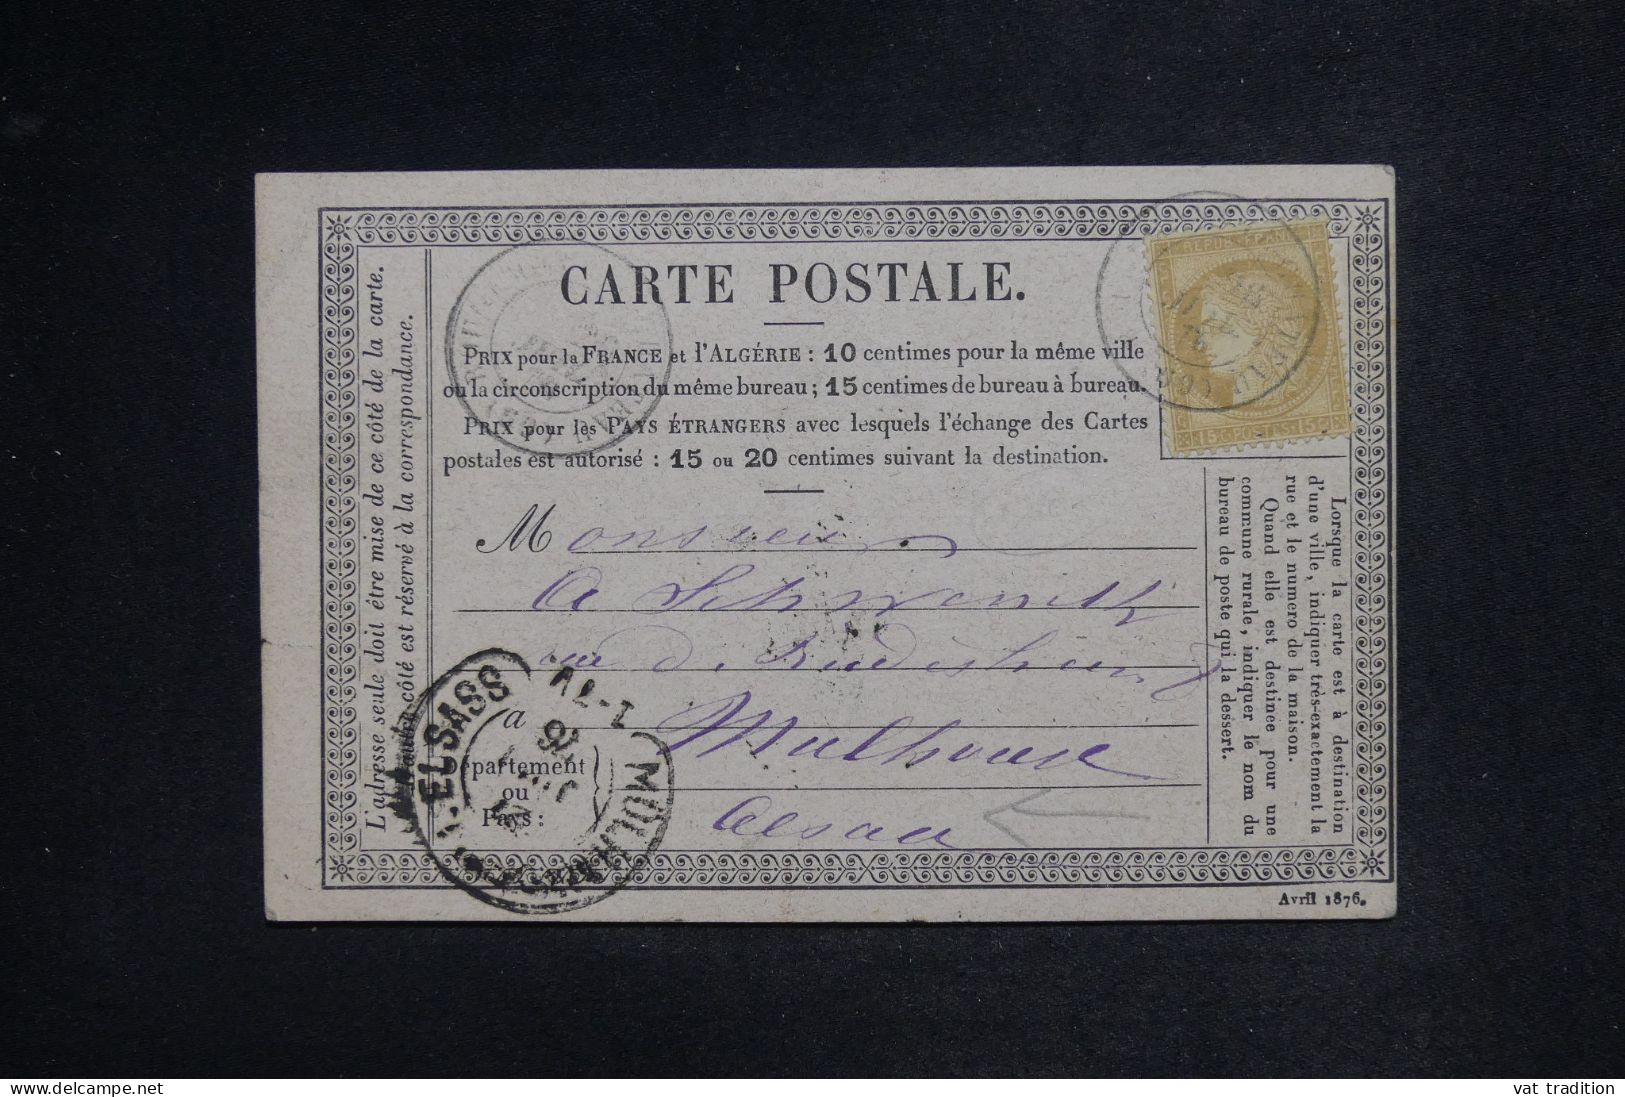 CARTE POSTALE.
PRIX pour la FRANCE et l'ALGÉRIE : 10 centimes pour la même ville
ou la circonscription du même bureau ; 15 centimes de bureau à bureau.
PRIX pour les PAYS ÉTRANGERS avec lesquels l'échange des Cartes
postales est autorisé : 15 ou 20 centimes suivant la destination.
L'adresse seule doit être mise de ce côté de la carte.
côté est réservé à la correspondance.
REPUB FRANC
15 c POSTES 15 c
Lorsque la carte est à destination
d'une ville, indiquer très-exactement la
rue et le numero de la maison.
Quand elle est destinée pour une
commune rurale, indiquer le nom du
bureau de poste qui la dessert.
Monsieur
A
rue de
a Mulhouse
partement
ou
Pays :
Alsace
MULHAUSEN
ELSASS
Avril 1876.
vat tradition